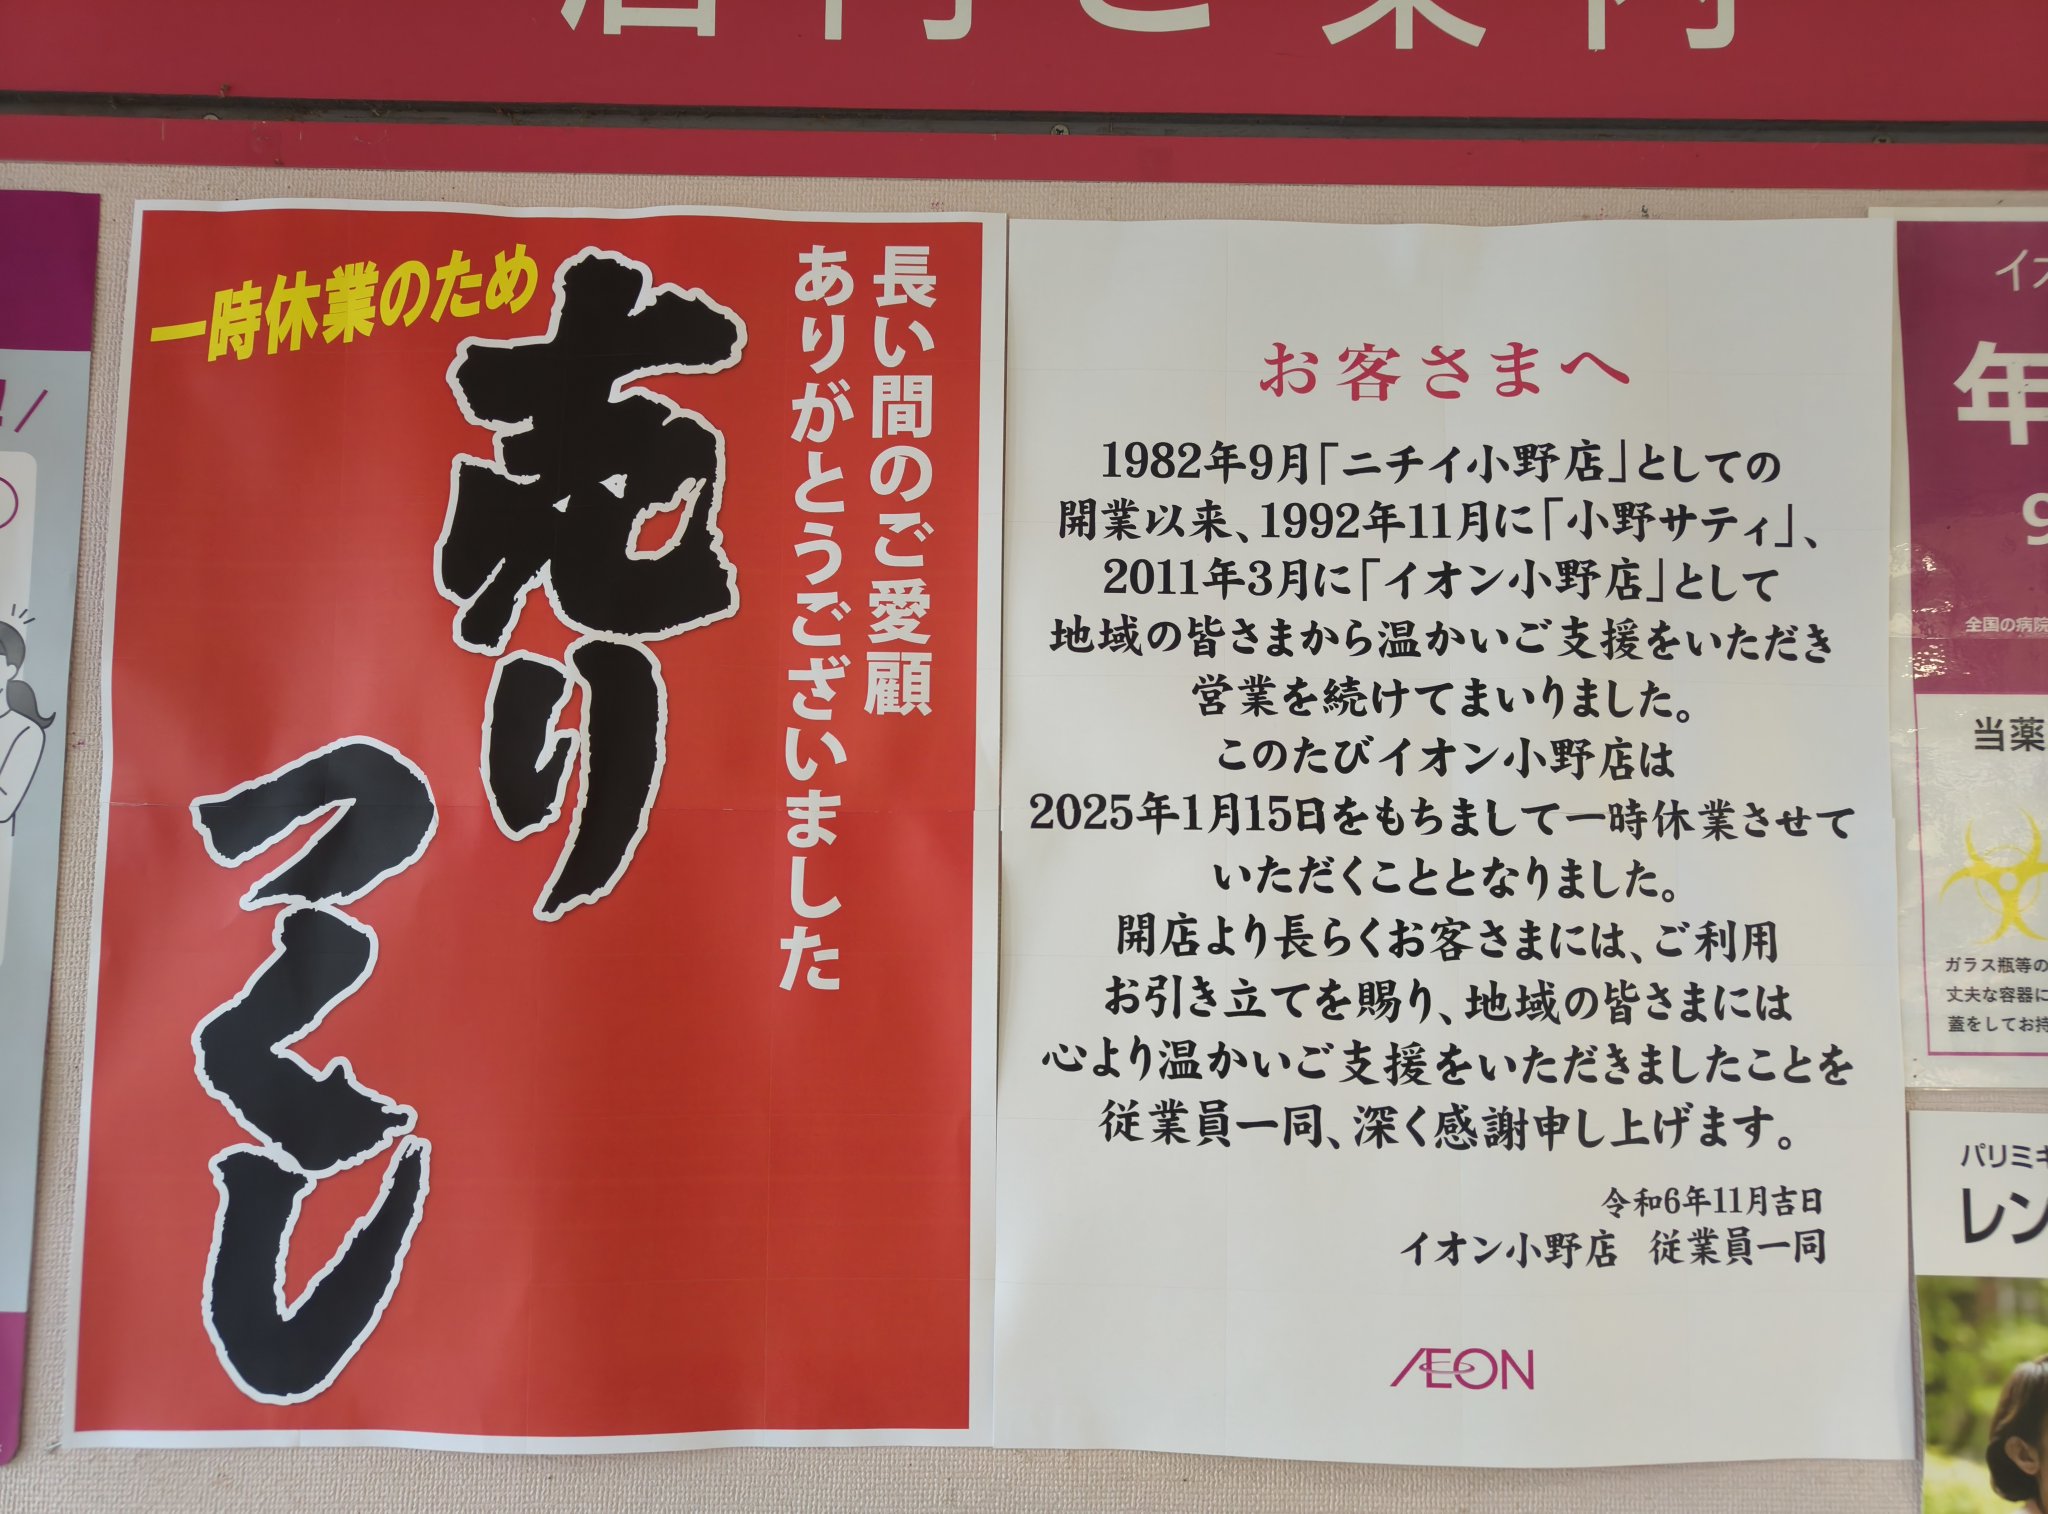 店内ご案内
長い間のご愛顧
ありがとうございました
一時休業のため
売り
つくし
お客さまへ
1982年9月「ニチイ小野店」としての
開業以来、1992年11月に「小野サティ」、
2011年3月に「イオン小野店」として
地域の皆さまから温かいご支援をいただき
営業を続けてまいりました。
このたびイオン小野店は
2025年1月15日をもちまして一時休業させて
いただくこととなりました。
開店より長らくお客さまには、ご利用
お引き立てを賜り、地域の皆さまには
心より温かいご支援をいただきましたことを
従業員一同、深く感謝申し上げます。
令和6年11月吉日
イオン小野店 従業員一同
ÆON
イオ
年
9
全国の病院
当薬
ガラス瓶等の
丈夫な容器に
蓋をしてお持
パリミキ
レン